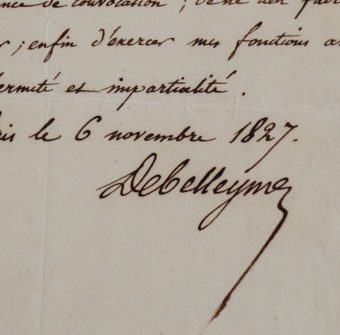 nce de convocation ; de ne rien
r ; enfin d'exercer mes fonctions a
ermeté et impartialité.
ris le 6 novembre 1827.
Debelleyme